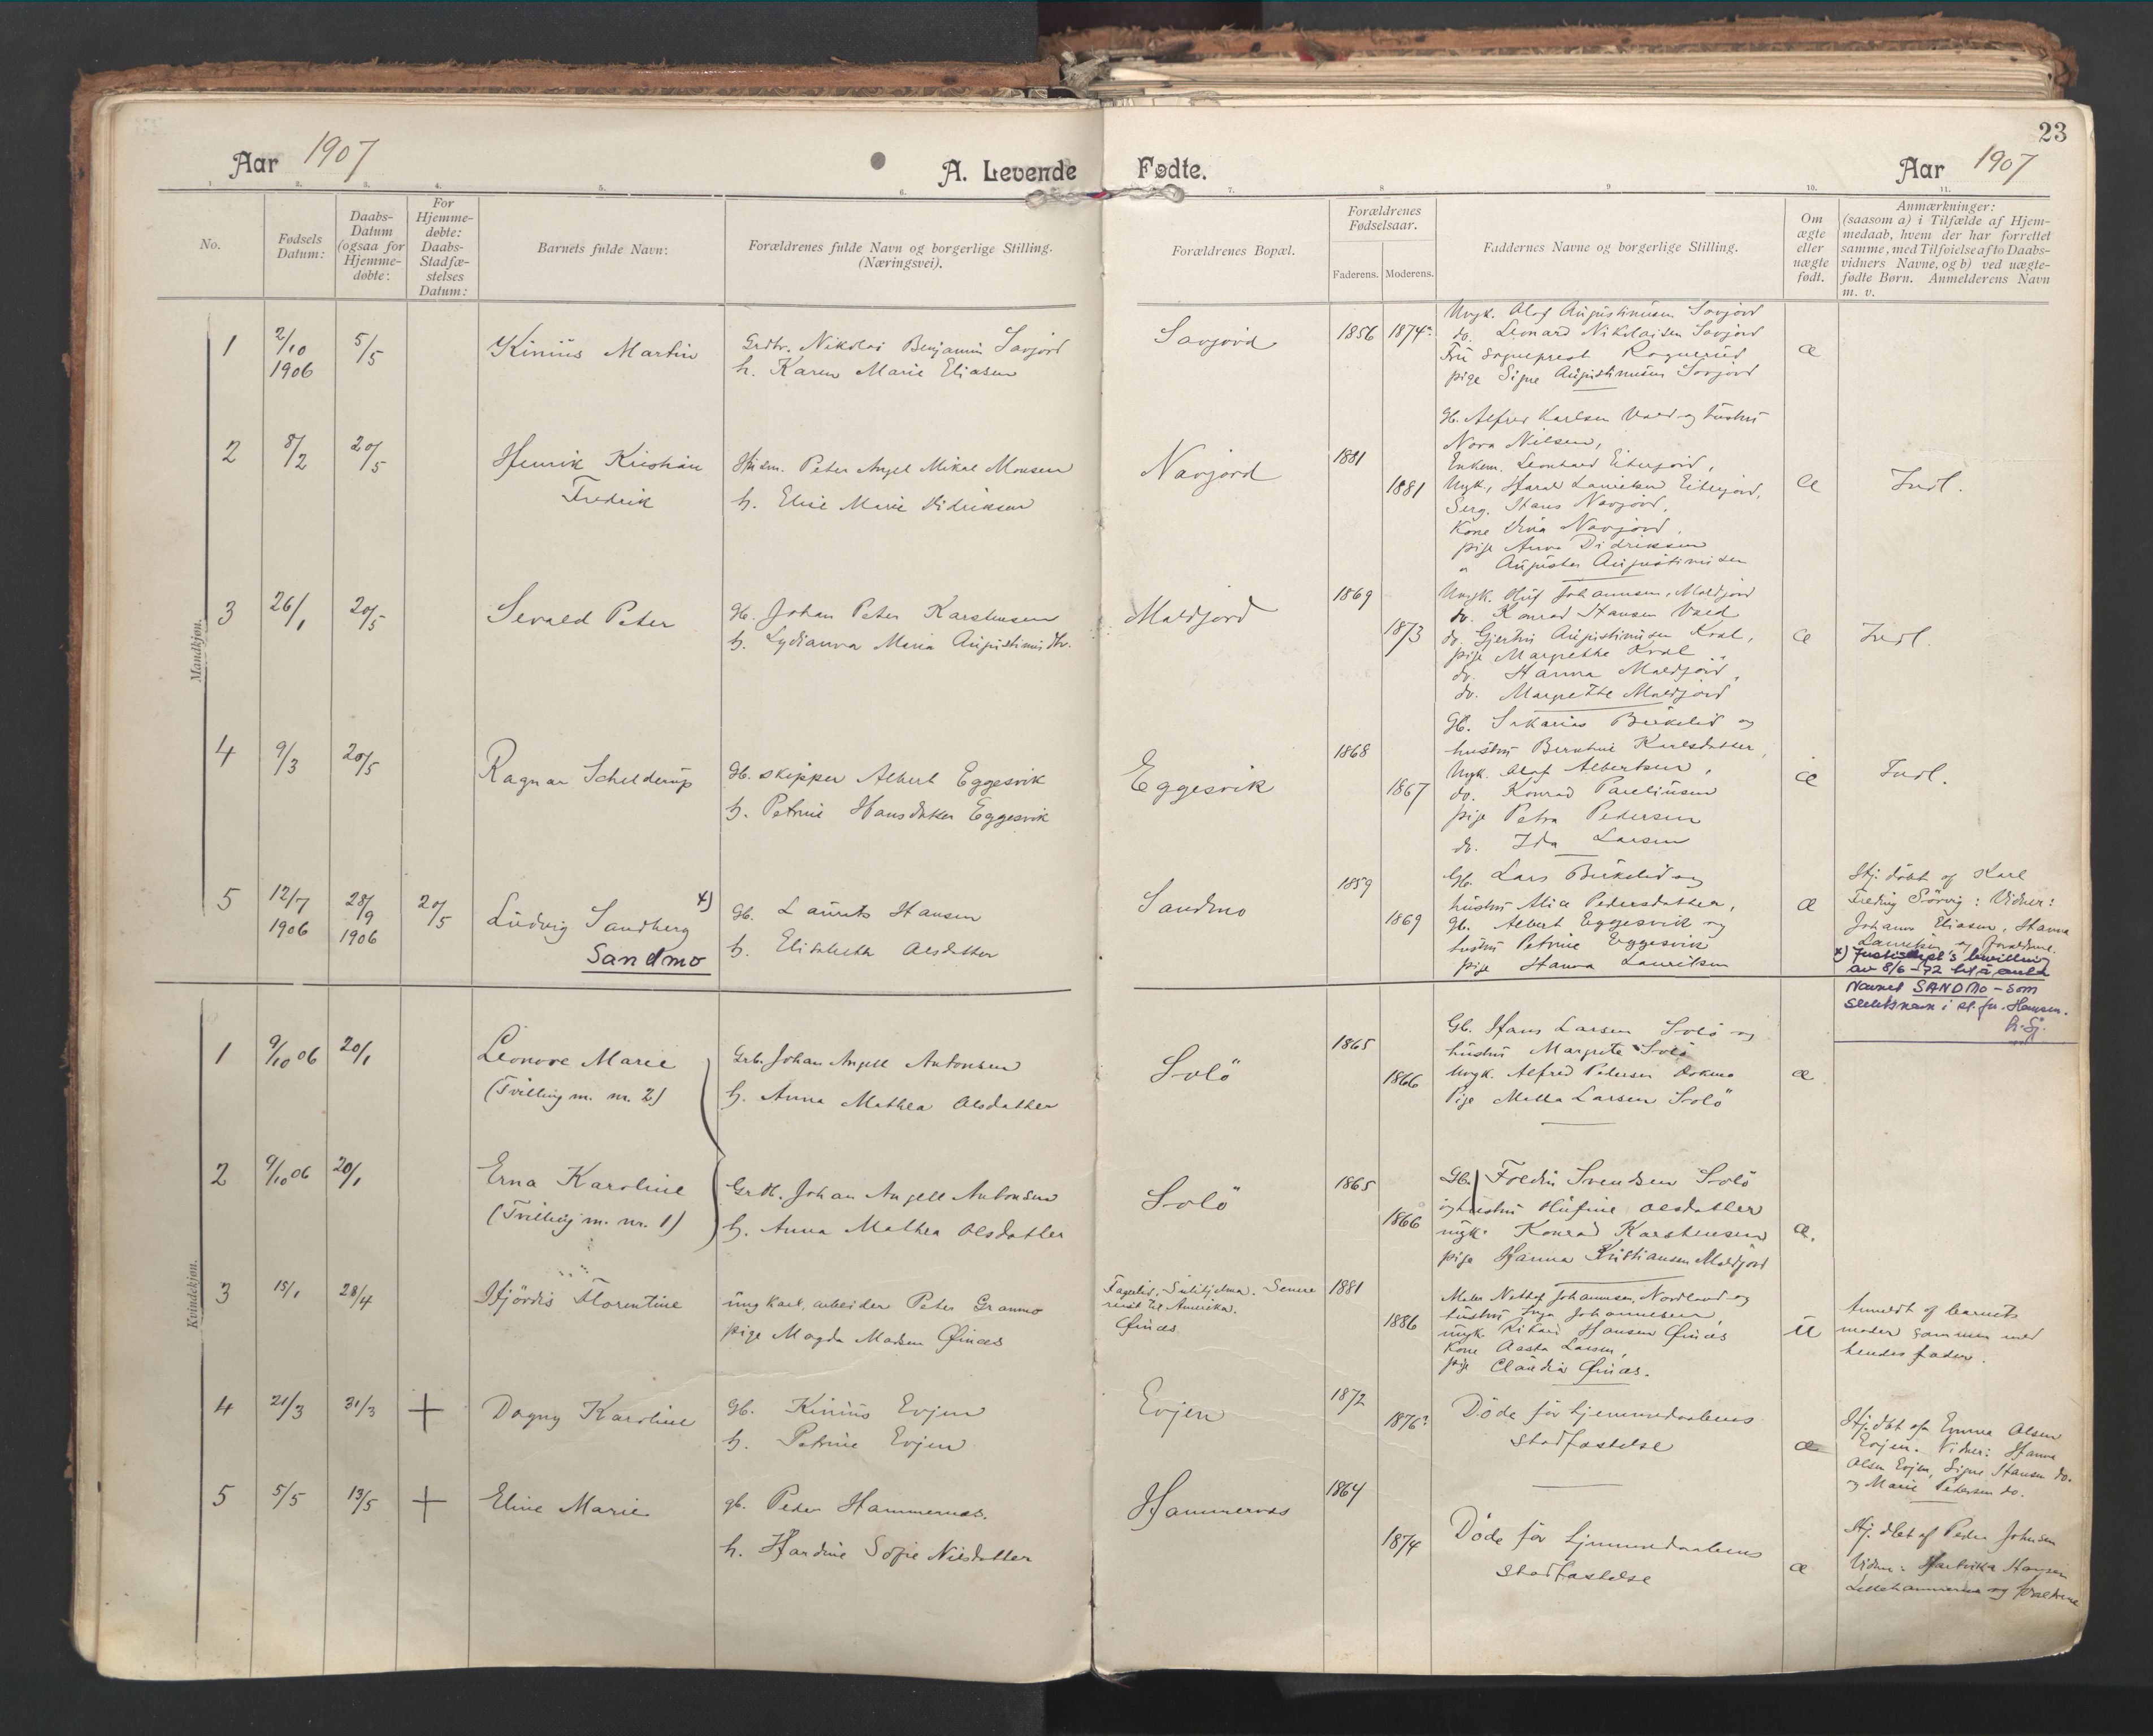 23
Aar 1907 A. Levende Fødte. Aar 1907
1. 2. 3. 4. 5. 6. 7. 8 9 10. 11.
No.
Fødsels
Datum:
Daabs-
Datum
(ogsaa for
Hjemme-
døbte:
For
Hjemme-
døbte:
Daabs-
Stadfæ-
stelses
Datum:
Barnets fulde Navn:
Forældrenes fulde Navn og borgerlige Stilling.
(Næringsvei).
Forældrenes Bopæl.
Forældrenes
Fødselsaar.
Faderens. Moderens.
Faddernes Navne og borgerlige Stilling.
Om
ægte
eller
uægte
født.
Anmærkninger:
(saasom a) i Tilfælde af Hjem-
medaab, hvem der har forrettet
samme, med Tilføielse af to Daabs-
vidners Navne, og b) ved uægte-
fødte Børn. Anmelderens Navn
m. v.
Mandkjøn.
1
2/10
1906
5/5
Kinius Martin
Grdbr. Nikolai Benjamin Savjord
h. Karen Marie Eliasen
Savjord
1856 1874
Ungk. Olof Augustinusen Savjord
do. Leonard Nikolaisen Savjord
Fru Sogneprest
pige Signe Augustinusen Savjord
æ
2
8/2
20/5
Henrik Kristian
Fredrik
Husm. Peter Angel Mikal Monsen
h. Elise Marie Didriksen
Navjord
1881
1881
gb. Alfred Karlsen Vald og hustru
Nora Nilsen,
Enkem. Leonhard Eiterjord,
Ungk. Harald Lauritsen Eiterjord,
Serg. Hans Navjord,
Kone Navjord,
pige Anna Didriksen
" Augusta Augustinusen
æ
Indl.
3
26/1
20/5
Sevald Peter
gb. Johan Peter Karstensen
h. Lydianna Maria Augustinusdtr.
Maldjord
1869
1873
Ungk. Oluf Johannsen, Maldjord
do. Konrad Hansen Vald
do. Gjertin Augustinusen Kval,
pige Margrethe Kval,
do. Hanna Maldjord,
do. Margrethe Maldjord
æ
Indl.
4
9/3
20/5
Ragnar Schelderup
gb. skipper Albert Eggesvik
h. Petrine Hansdatter Eggesvik
Eggesvik
1868
1867
gb. Sakarias Birkelid og
hustru Berntine Karlsdatter,
Ungk. Olaf Albertsen,
do. Konrad Pareliusen
pige Petra Pedersen
do. Ida Larsen
æ
Indl.
5
12/7
1906
28/9
1906
20/5
Ludvig Sandberg x)
Sandmo
gb. Laurits Hansen
h. Elisabeth Olsdatter
Sandmo
1859
1869
Gb. Lars Birkelid og
hustru Alia Pedersdatter,
gb. Albert Eggesvik og
hustru Petrine Eggesvik
pige Hanna Lauritsen
æ
Hj. döbt af Karl
Fredrig Sörvig: Vidner:
Johanna Eliasen, Hanna
Lauritsen og forældrene.
x) Justisdept's bevilling
av 8/6-72 til å anta
navnet SANDMO - som
slektsnavn i st. for Hansen.
Kvindekjøn.
1
9/10 06
20/1
Leonore Marie
(Tvilling m. nr. 2)
Grb. Johan Angell Antonsen
h. Anna Mathea Olsdatter
Solö
1865
1866
Gb. Hans Larsen Solö og
hustru Margrete Solö
Ungk. Alfred Pedersen Oskmo
Pige Milla Larsen Solö
æ
2
9/10 06
20/1
Erna Karoline
(Tvilling m. nr. 1)
Grdb. Johan Angell Antonsen
h. Anna Mathea Olsdatter
Solö
1865
1866
Gb. Foldin Svendsen Solö
og hustru Rufine Olsdatter
ungk. Konrad Karstensen
pige Hanna Kristiansen Maldjord
æ.
3
15/1
28/4
Hjördis Florentine
ungkarl, arbeider Peter Granmo
pige Magda Madsen Öinæs
Fagerlid, Sulitjelma. Senere
reist til Amerika.
Öinæs
1881
1886
Johannsen, Nordland og
hustru Inga Johannesen,
ungk. Rikard Hansen Öinæs
Kone Aasta Larsen,
pige Claudia Öinæs.
u
Anmeldt af barnets
moder sammen med
hendes fader.
4
21/3
31/3
+
Dagny Karoline
gb. Kinius Evjen
h. Petrine Evjen
Evjen
1872
1876?
Döde för hjemmedaabens
stadfæstelse
æ
Hj. döbt af Emma Olsen
Evjen. Vidner: Hanna
Olsen Evjen, Signe Hansen do.
og Marie Pedersen do.
5
5/5
13/5
+
Eline Marie
gb. Peder Hammernæs.
h. Hardine Sofie Nilsdatter
Hammernæs
1864
1874
Döde för hjemmedaabens
stadfæstelse
æ
Hj. döbt af Peder Johnsen
Vidner: Hartvika Hansen
Lillehammernæs og forældrene